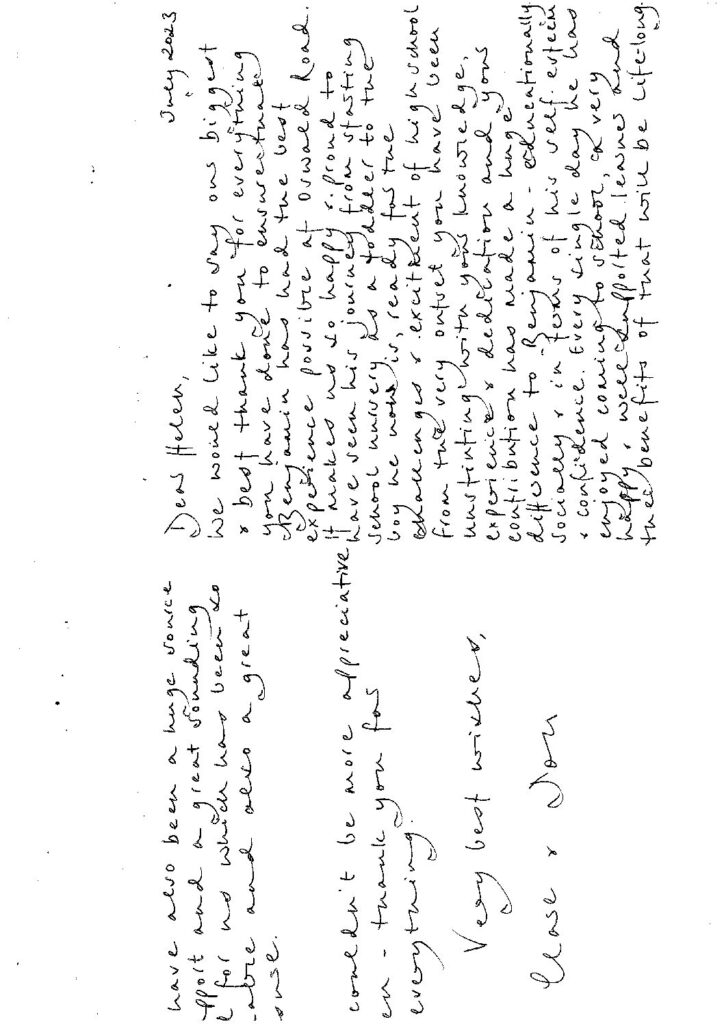 July 2023
Dear Helen,
We would like to say our biggest
& best thank you for everything
you have done to ensure that
Benjamin has had the best
experience possible at Oswald Road.
It makes us so happy & proud to
have seen his journey from starting
school nursery as a toddler to the
boy he now is, ready for the
challenges & excitment of high school
From the very outset you have been
unstinting with your knowledge,
experience & dedication and your
contribution has made a huge
difference to Benjamin - educationally
socially & in terms of his self-esteem
& confidence. Every single day he has
enjoyed coming to school, a very
happy & well supported learner and
the benefits of that will be life-long.
have also been a huge source
pport and a great sounding
for us which has been so
-able and also a great
couldn't be more appreciative
en - thank you for
everything.
Very best wishes,
Clare & Jon